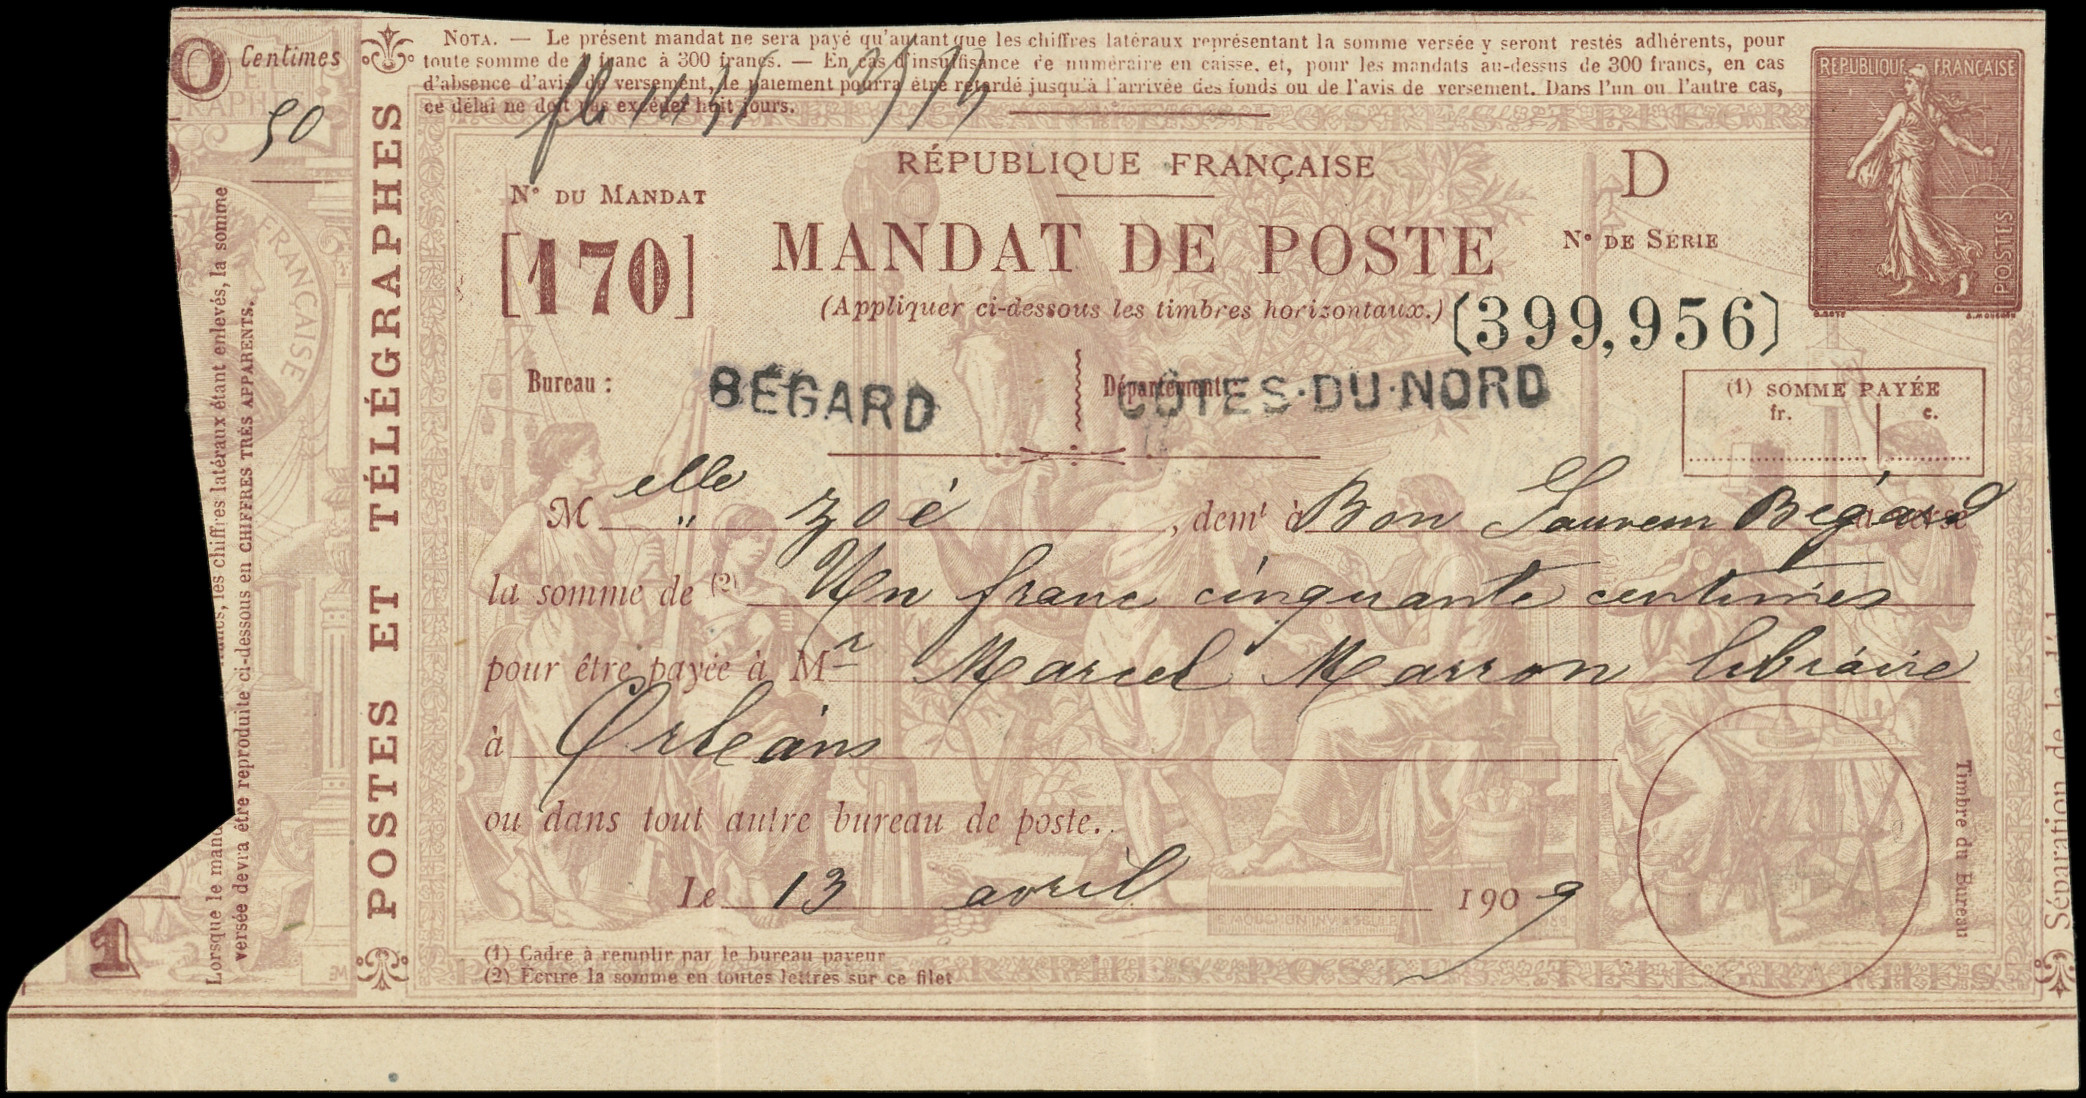 O Centimes
50
NOTA. — Le présent mandat ne sera payé qu'autant que les chiffres latéraux représentant la somme versée y seront restés adhérents, pour
toute somme de 1 franc à 300 francs. — En cas d'insuffisance de numéraire en caisse, et, pour les mandats au-dessus de 300 francs, en cas
d'absence d'avis de versement, le paiement pourra être retardé jusqu'à l'arrivée des fonds ou de l'avis de versement. Dans l'un ou l'autre cas,
ce délai ne doit pas excéder huit jours.
REPUBLIQUE FRANÇAISE
POSTES
RÉPUBLIQUE FRANÇAISE
D
N° DU MANDAT
[170]
MANDAT DE POSTE
N° DE SÉRIE
(Appliquer ci-dessous les timbres horizontaux.)
(399,956)
Bureau : BÉGARD
Département : CÔTES-DU-NORD
(1) SOMME PAYÉE
fr. c.
Melle " Zoé, demt à Bon Sauveur Bégard a versé
la somme de (2) Un franc cinquante centimes
pour être payée à Mr Marcel Marron libraire
à Orléans
ou dans tout autre bureau de poste.
Le 13 avril 1909
Timbre du Bureau
(1) Cadre à remplir par le bureau payeur
(2) Écrire la somme en toutes lettres sur ce filet
POSTES ET TÉLÉGRAPHES
FRANÇAISE
Lorsque le mand les chiffres latéraux étant enlevés, la somme
versée devra être reproduite ci-dessous en CHIFFRES TRÈS APPARENTS.
1
E. MOUCHON INV. & SCULP.
Séparation de la